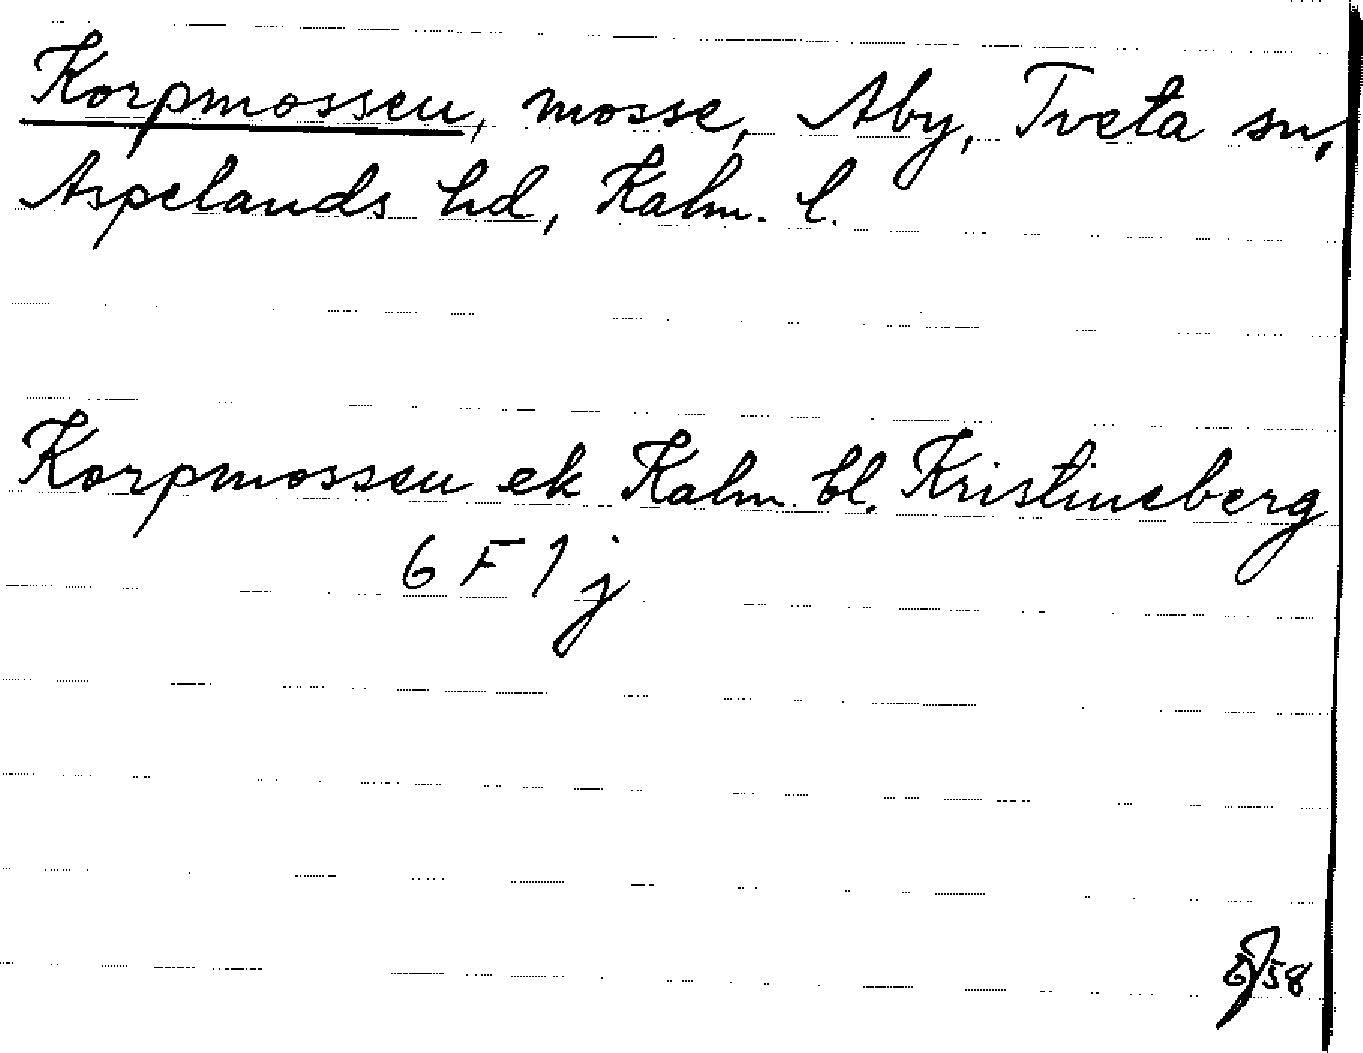 Korpmossen, mosse, Aby, Tveta sn,
Aspelands hd, Kalm. l.
Korpmossen ek Kalm. bl. Kristineberg
6 F 1 j